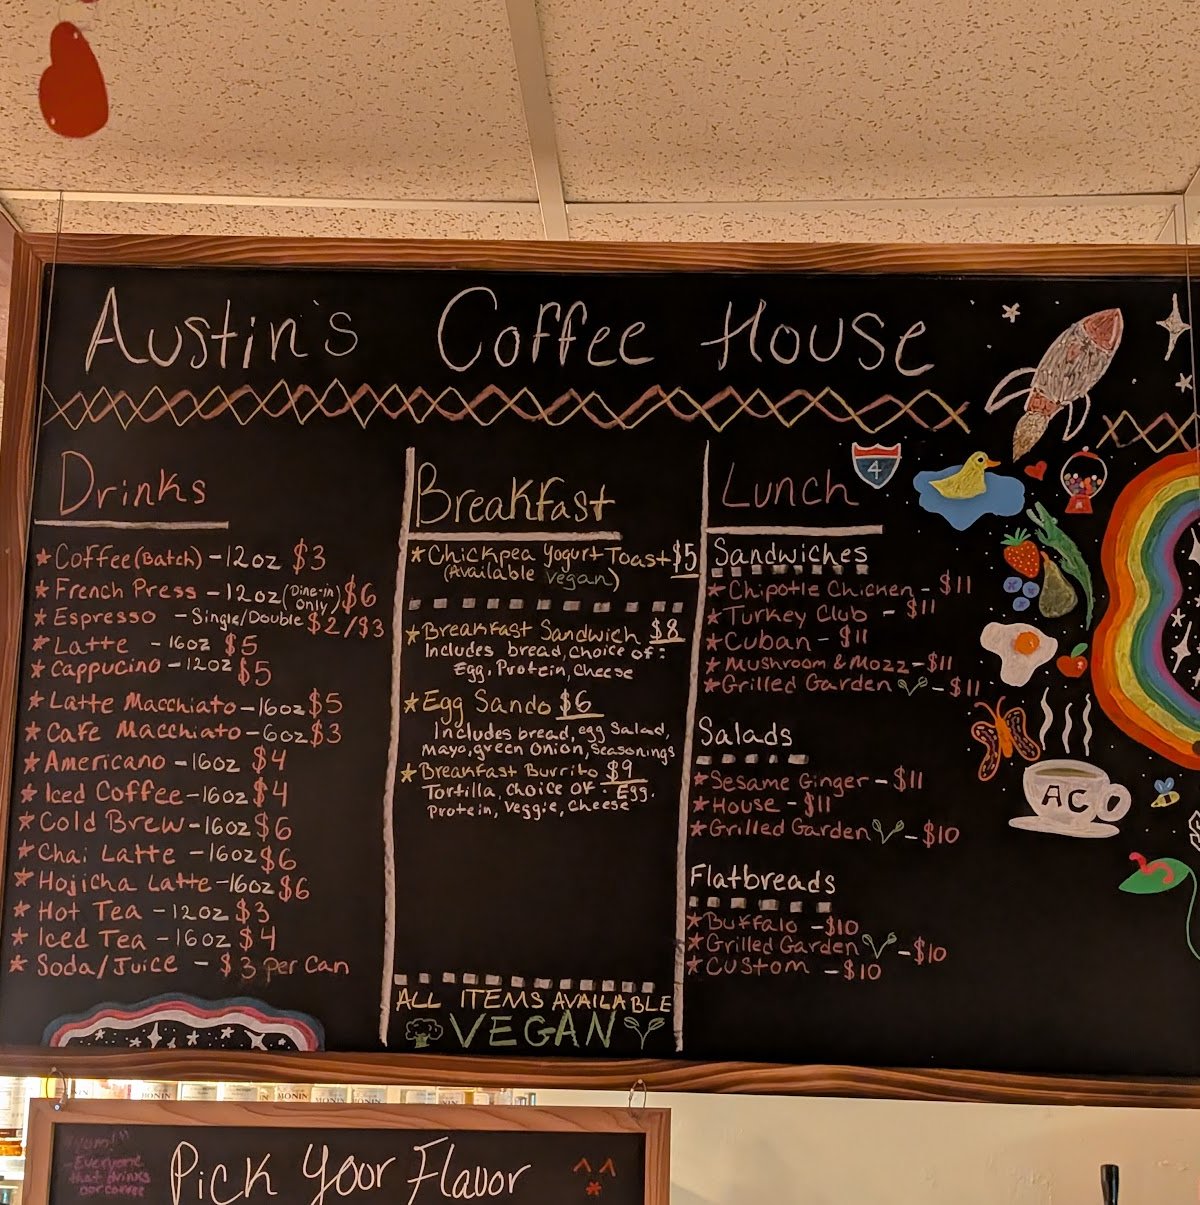 Austin's Coffee House
Drinks
★ Coffee (Batch) - 12oz $3
★ French Press - 12oz (Dine-in Only) $6
★ Espresso - Single/Double $2/$3
★ Latte - 16oz $5
★ Cappucino - 12oz $5
★ Latte Macchiato - 16oz $5
★ Cafe Macchiato - 6oz $3
★ Americano - 16oz $4
★ Iced Coffee - 16oz $4
★ Cold Brew - 16oz $6
★ Chai Latte - 16oz $6
★ Hojicha Latte - 16oz $6
★ Hot Tea - 12oz $3
★ Iced Tea - 16oz $4
★ Soda/Juice - $3 per can
Breakfast
★ Chickpea Yogurt Toast $5
(Available vegan)
★ Breakfast Sandwich $8
Includes bread, choice of:
Egg, Protein, Cheese
★ Egg Sando $6
Includes bread, egg salad,
mayo, green onion, seasonings
★ Breakfast Burrito $9
Tortilla, choice of: Egg,
Protein, Veggie, Cheese
ALL ITEMS AVAILABLE
VEGAN
Lunch
4
Sandwiches
★ Chipotle Chicken - $11
★ Turkey Club - $11
★ Cuban - $11
★ Mushroom & Mozz - $11
★ Grilled Garden - $11
Salads
★ Sesame Ginger - $11
★ House - $11
★ Grilled Garden - $10
Flatbreads
★ Buffalo - $10
★ Grilled Garden - $10
★ Custom - $10
AC
MONIN
MONIN
MONIN
"Yum!"
- Everyone
that drinks
our coffee
Pick Your Flavor